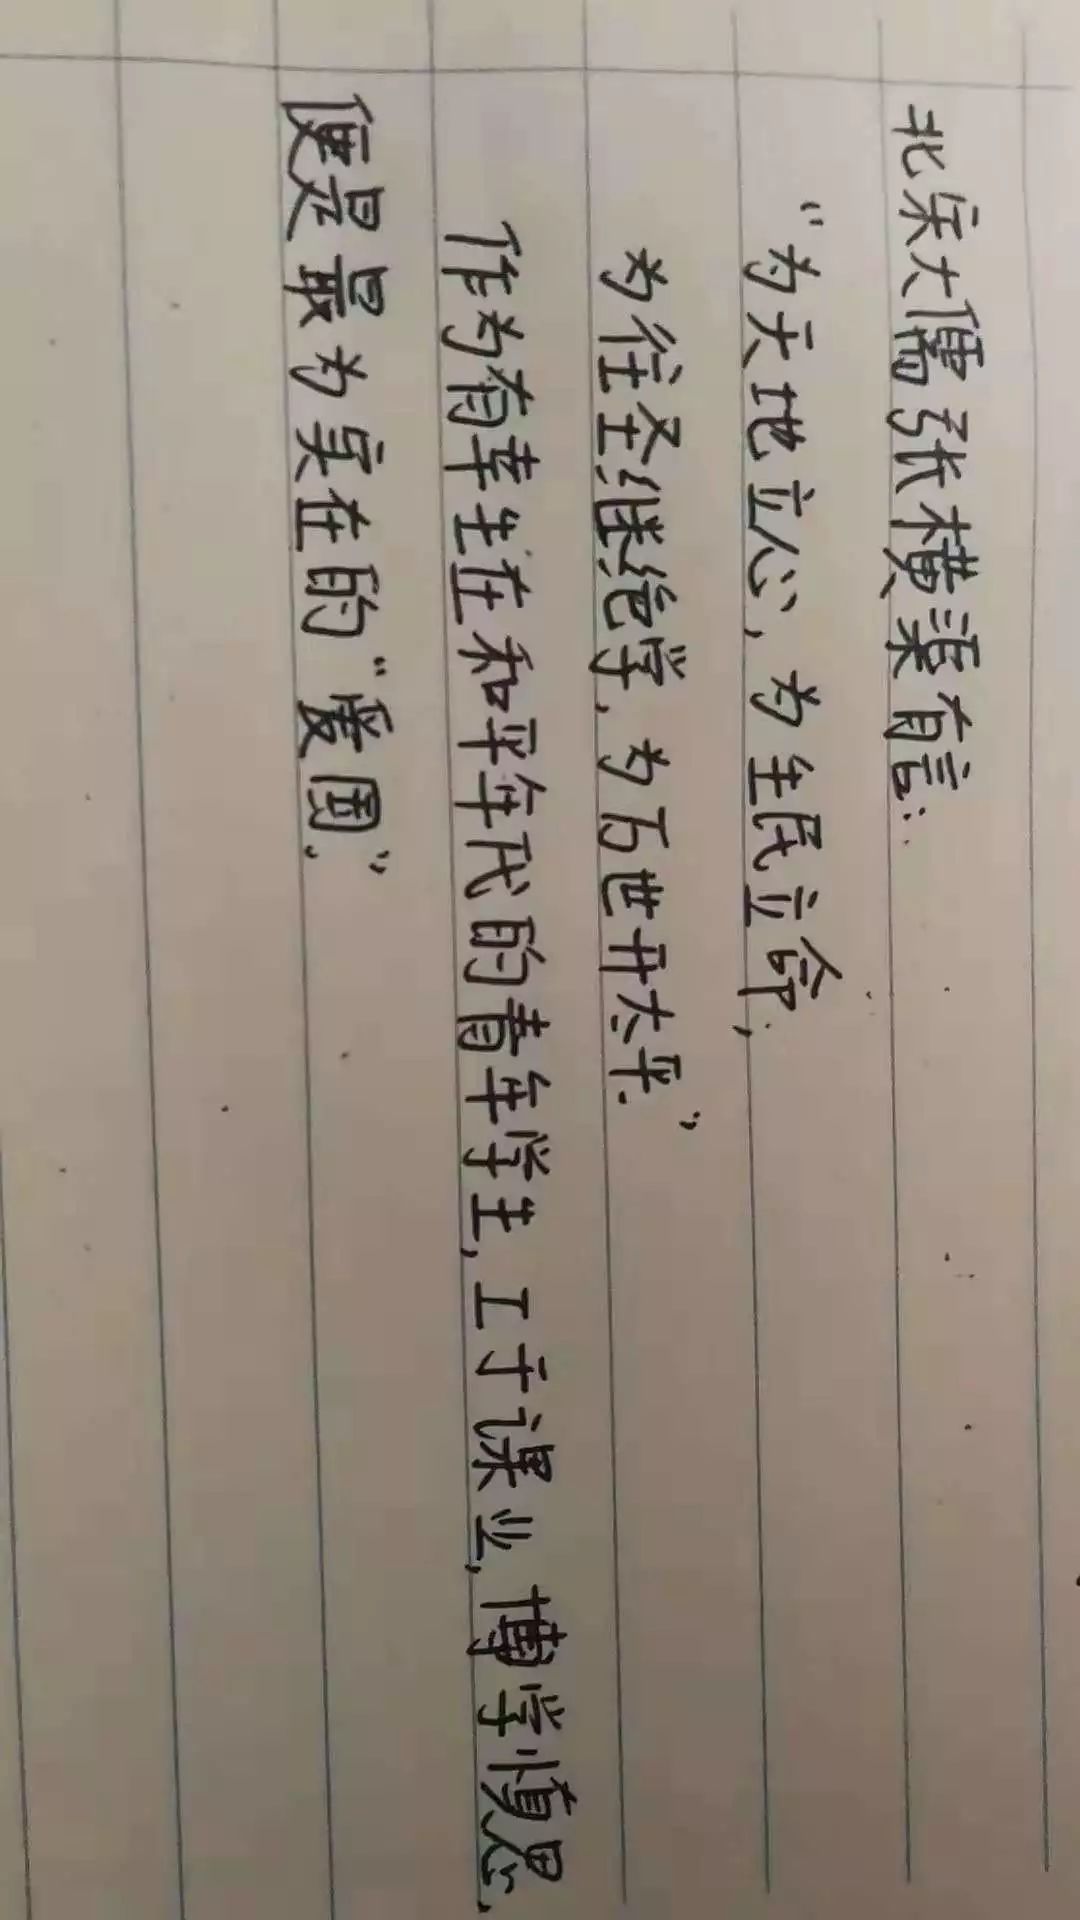 北宋大儒张横渠有言：
“为天地立心，为生民立命，
为往圣继绝学，为万世开太平。”
作为有幸生在和平年代的青年学生，工于课业，博学慎思，
便是最为实在的“爱国。”